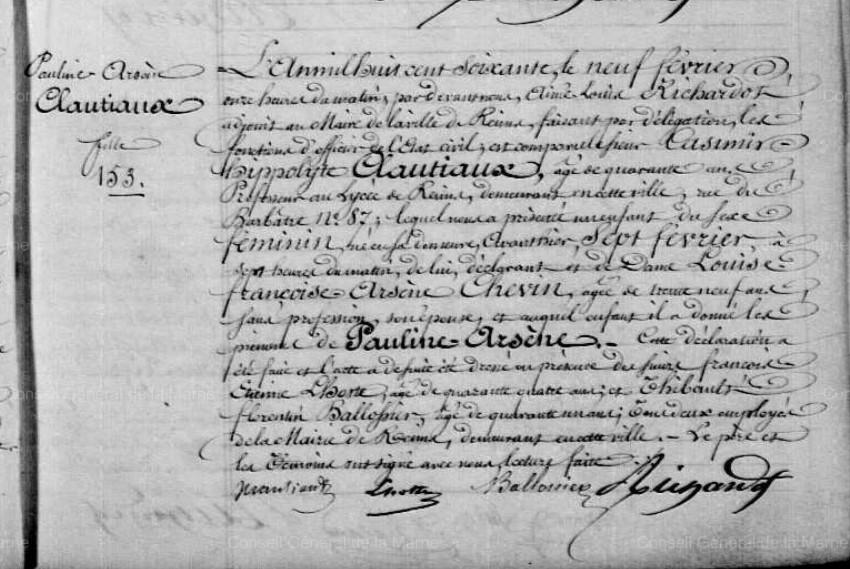 Pauline Arsène
Clautiaux
fille
153.
L'An mil huit cent soixante, le neuf février
onze heures du matin, par devant nous, Aimé Louis Richardot
adjoint au Maire de la ville de Reims, faisant par délégation, les
fonctions d'officier de l'Etat civil; est comparu le sieur Casimir
hippolyte Clautiaux, âgé de quarante ans,
Professeur au Lycée de Reims, demeurant en cette ville, rue du
Barbâtre N° 87; lequel nous a présenté un enfant du sexe
féminin, né en sa demeure, avant hier, Sept février, à
sept heures du matin, de lui, déclarant et de Dame Louise
françoise Arsène Chevin, âgée de trente neuf ans
sans profession, son épouse, et auquel enfant il a donné les
prénoms de Pauline Arsène. - Cette déclaration a
été faite et l'acte a de suite été dressé en présence des sieurs françois
Etienne Lhotte, âgé de quarante quatre ans; et Thibault
florentin Ballossier, âgé de quarante un ans; Tous deux employés
de la Mairie de Reims, demeurant en cette ville. - Le père et
les Témoins ont signé avec nous, lecture faite.
Lhotte Ballossier
Conseil Général de la Marne
Conseil Général de la Marne